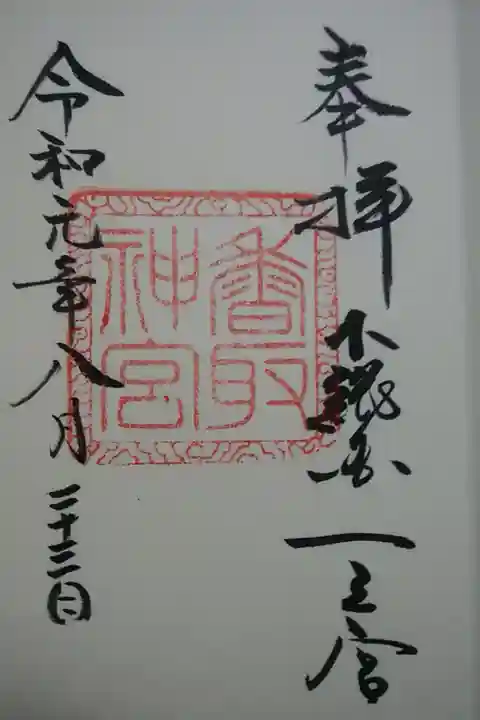 奉拝 下総国 一之宮
香取
神宮
令和元年八月二十三日